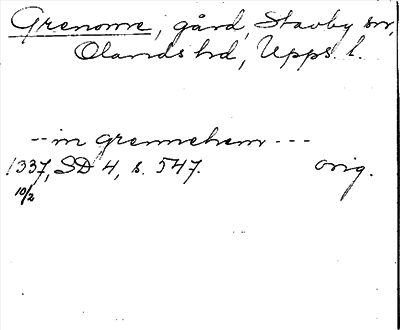 Grenome, gård, Stavby sn,
Olands hd, Upps. l.
-- in grennehem ---
1337, SD 4, s. 547. orig.
10/2